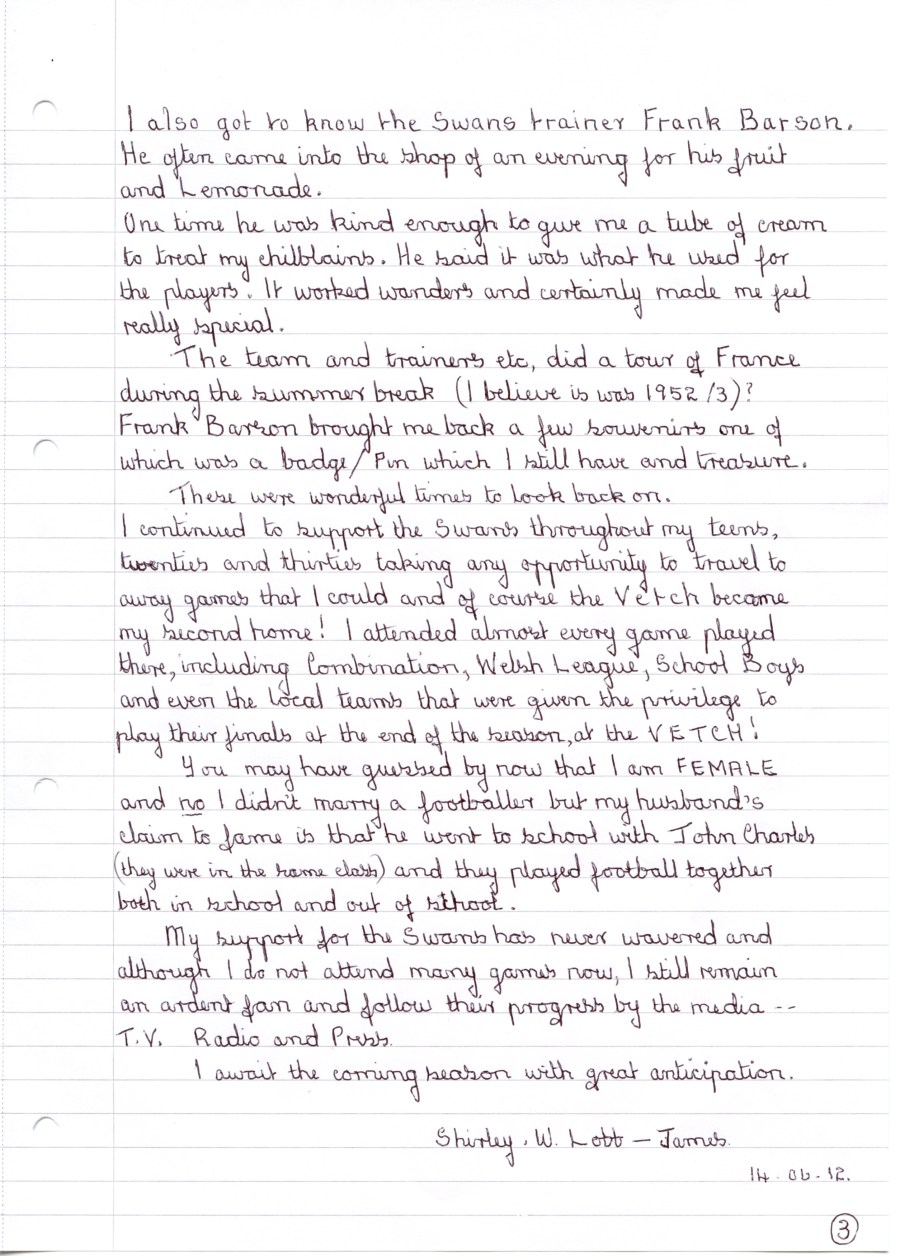 I also got to know the Swans trainer Frank Barson.
He often came into the shop of an evening for his fruit
and Lemonade.
One time he was kind enough to give me a tube of cream
to treat my chilblains. He said it was what he used for
the players. It worked wanders and certainly made me feel
really special.
The team and trainers etc, did a tour of France
during the summer break (I believe is was 1952/3)?
Frank Barson brought me back a few souvenirs one of
which was a badge/Pin which I still have and treasure.
These were wonderful times to look back on.
I continued to support the Swans throughout my teens,
twenties and thirties taking any opportunity to travel to
away games that I could and of course the Vetch became
my second home! I attended almost every game played
there, including Combination, Welsh League, School Boys
and even the local teams that were given the privilege to
play their finals at the end of the season, at the VETCH!
You may have guessed by now that I am FEMALE
and no I didn't marry a footballer but my husband's
claim to fame is that he went to school with John Charles
(they were in the same class) and they played football together
both in school and out of school.
My support for the Swans has never wavered and
although I do not attend many games now, I still remain
an ardent fan and follow their progress by the media --
T.V. Radio and Press.
I await the coming season with great anticipation.
Shirley. W. Lobb - James.
14.06.12.
3